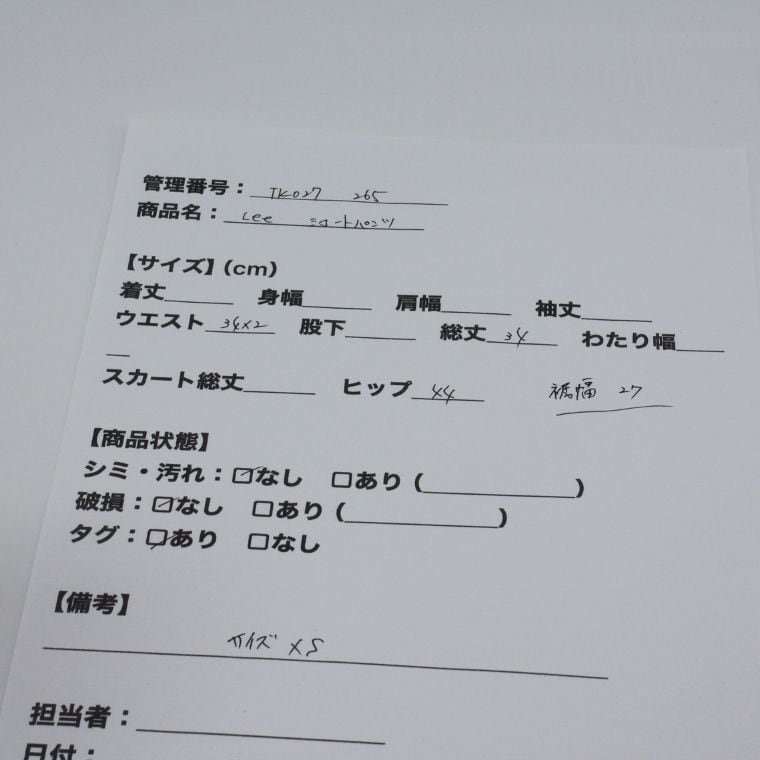 管理番号：TK027 265
商品名：Lee ショートパンツ
【サイズ】(cm)
着丈 身幅 肩幅 袖丈
ウエスト 34×2 股下 総丈 34 わたり幅
スカート総丈 ヒップ 44 裾幅 27
【商品状態】
シミ・汚れ：☑なし □あり ( )
破損：☑なし □あり ( )
タグ：☑あり □なし
【備考】
サイズ XS
担当者：
日付：